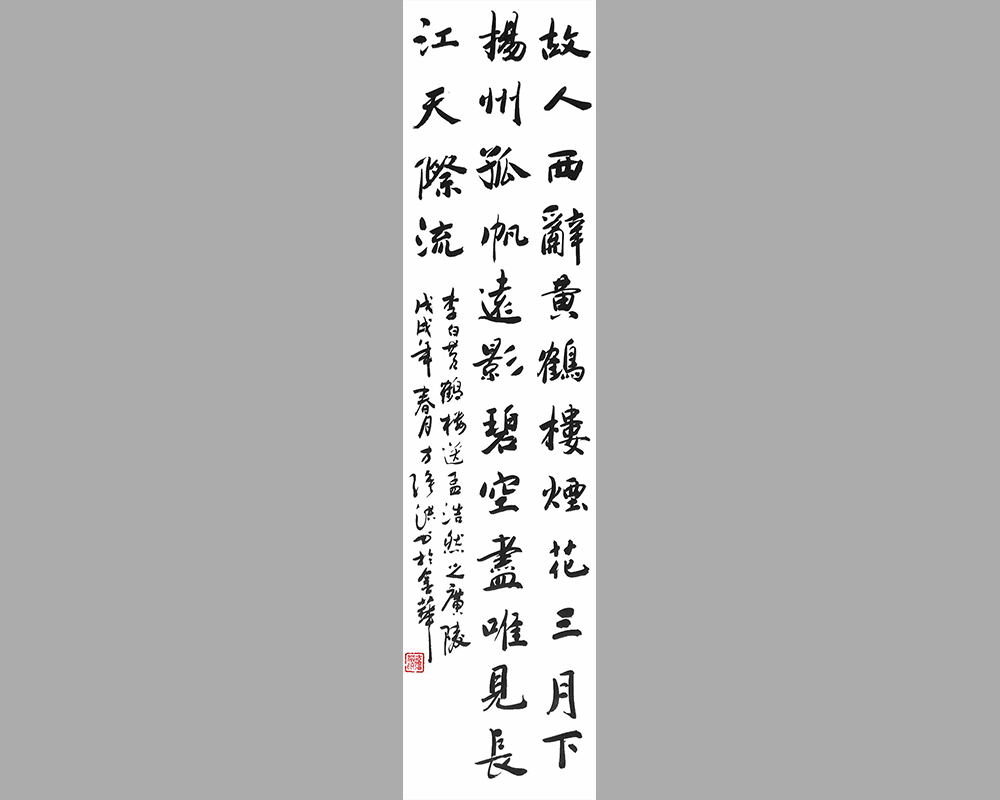 故人西辭黃鶴樓煙花三月下
揚州孤帆遠影碧空盡唯見長
江天際流
李白黃鶴樓送孟浩然之廣陵
戊戌年春月方 洪书於金華